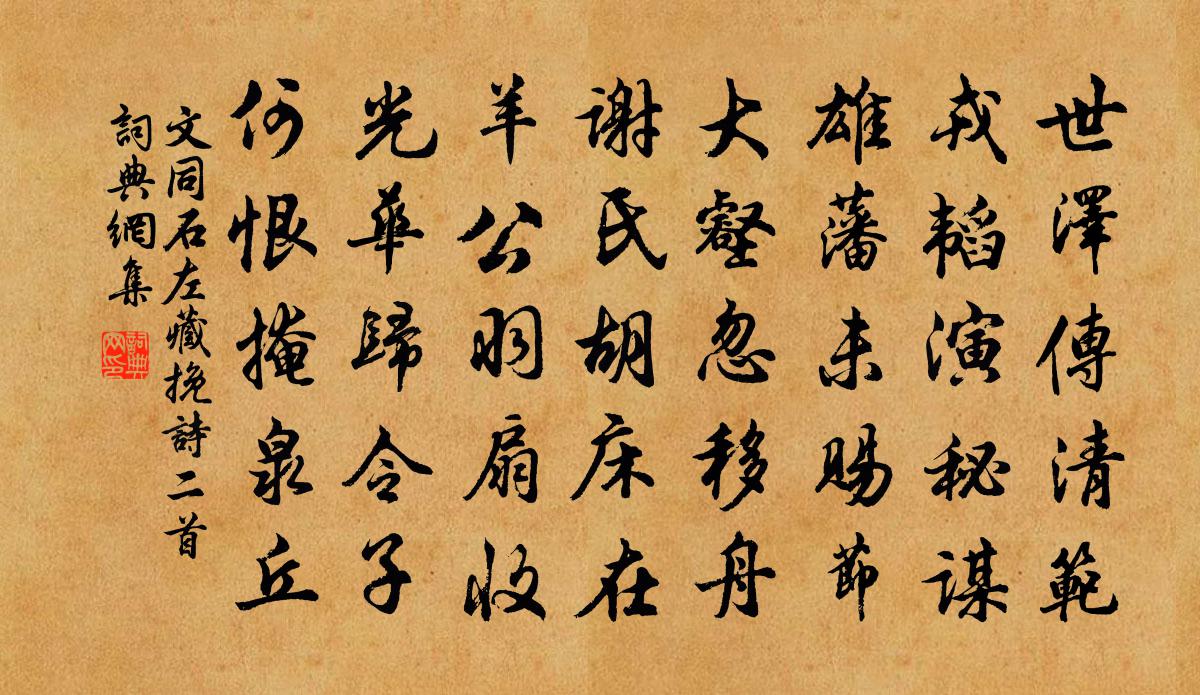 世澤傳清範
戎韜演秘謀
雄藩未賜節
大壑忽移舟
謝氏胡床在
羊公羽扇收
光華歸令子
何恨掩泉丘
文同石左藏挽詩二首
詞典網集
詞典網印